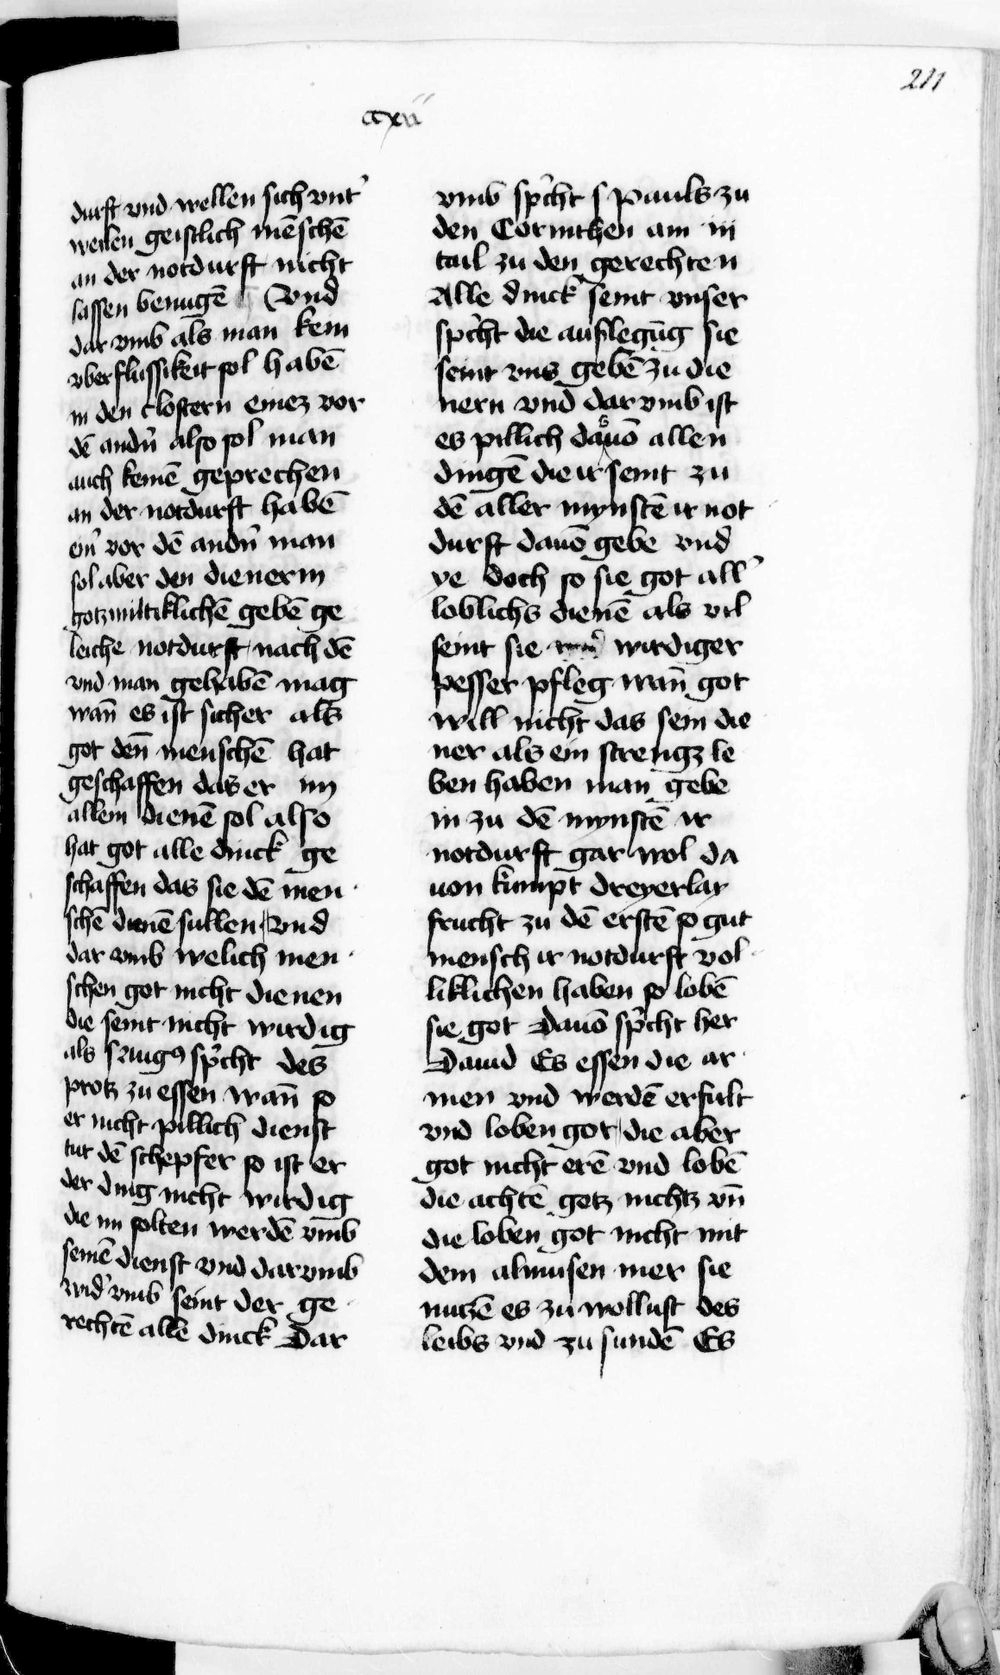 211
ccxii
durft vnd wellen sich vnt᾽
weilen geistlich mēschē
an der notdurft nicht
lassen benugē Vnd
dar vmb als man kein
vberflussikeit sol habē
in den clostern einez vor
dē andn̄ also sol man
auch keinē geprechen
an der notdurft habē
ein᾽ vor dē andn̄ man
sol aber den dienerin
gotz miltiklichē gebē ge
leiche notdurft nach dē
vnd man gehabē mag
wan̄ es ist sicher als
got den̄ menschē hat
geschaffen das er im
allein dienē sol also
hat got alle dinck ge
schaffen das sie dē men
schē dienē sullen Vnd
dar vmb welich men
schen got nicht dienen
die seint nicht wirdig
als s augꝰ sp̄cht des
protz zu essen wan̄ so
er nicht pillich dienst
tut dē schepfer so ist er
der ding nicht wirdig
die im solten werdē vmb
seinē dienst vnd darvmb
wid᾽ vmb seint der ge
rechtē alle dinck Dar
vmb sp̄cht s Pauls zu
den Corinthen am iii
tail zu den gerechten
Alle dinck seint vnser
sp̄cht die auslegūg sie
seint vns gebē zu die
nern vnd dar vmb ist
es pillich das uō allen
dingē die ir seint zu
dē aller mynstē ir not
durft dauō gebe vnd
ye doch so sie got all᾽
loblichs dienē als vil
seint sie wirdiger
pesser pfleg wan̄ got
will nicht das sein die
ner als ein strengz le
ben haben man gebe
in zu dē mynstē ir
notdurft gar wol da
uon kumpt dreyerlay
frucht zu dē erstē so gut
mensch ir notdurft vol
liklichen haben so lobē
sie got Dauō sp̄cht her
Dauid Es essen die ar
men vnd werdē erfult
vnd loben got die aber
got nicht erē vnd lobē
die achtē gotz nichtz vn̄
die loben got nicht mit
dem almusen mer sie
nutzē es zu wollust des
leibs vnd zu sundē Es